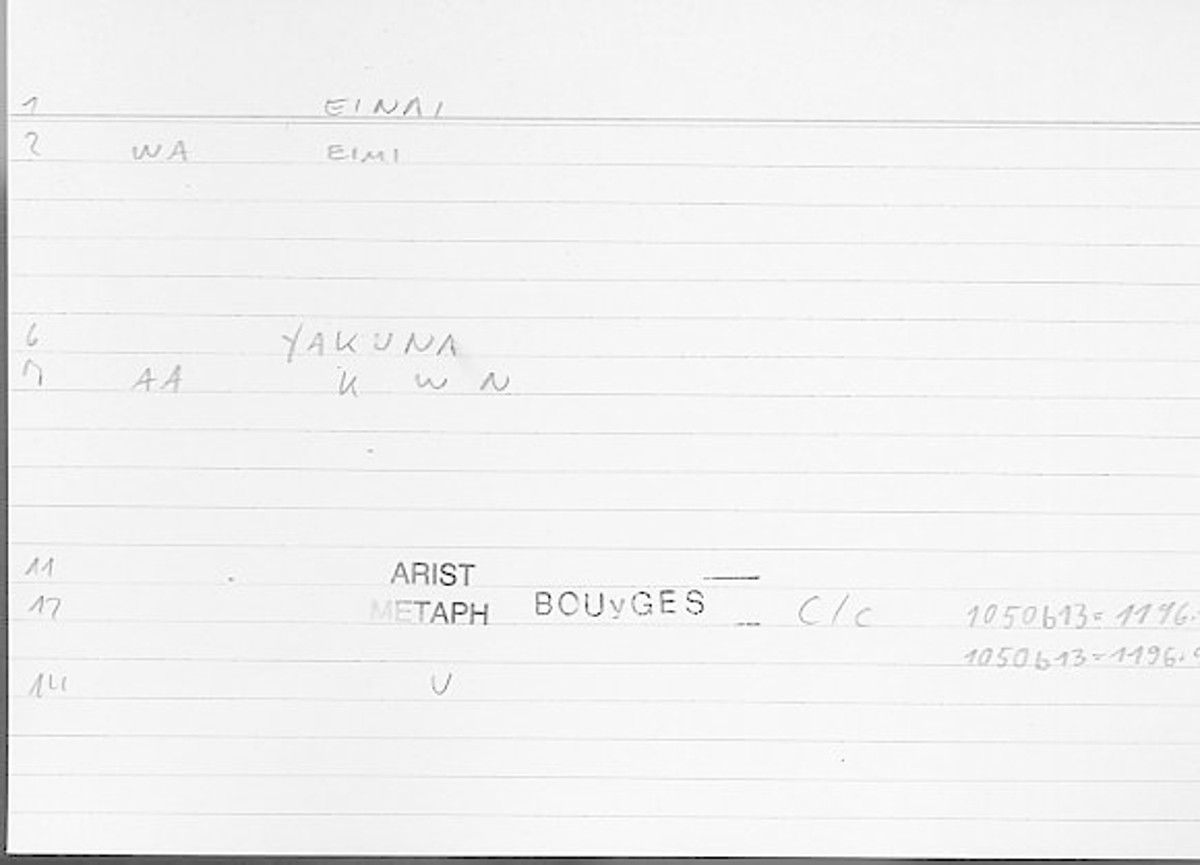 1 EINAI
2 WA EIMI
6 YAKUNA
7 AA K W N
11 ARIST
12 METAPH BOUyGES C/c 1050b13=1196.
1050b13=1196.
14 V